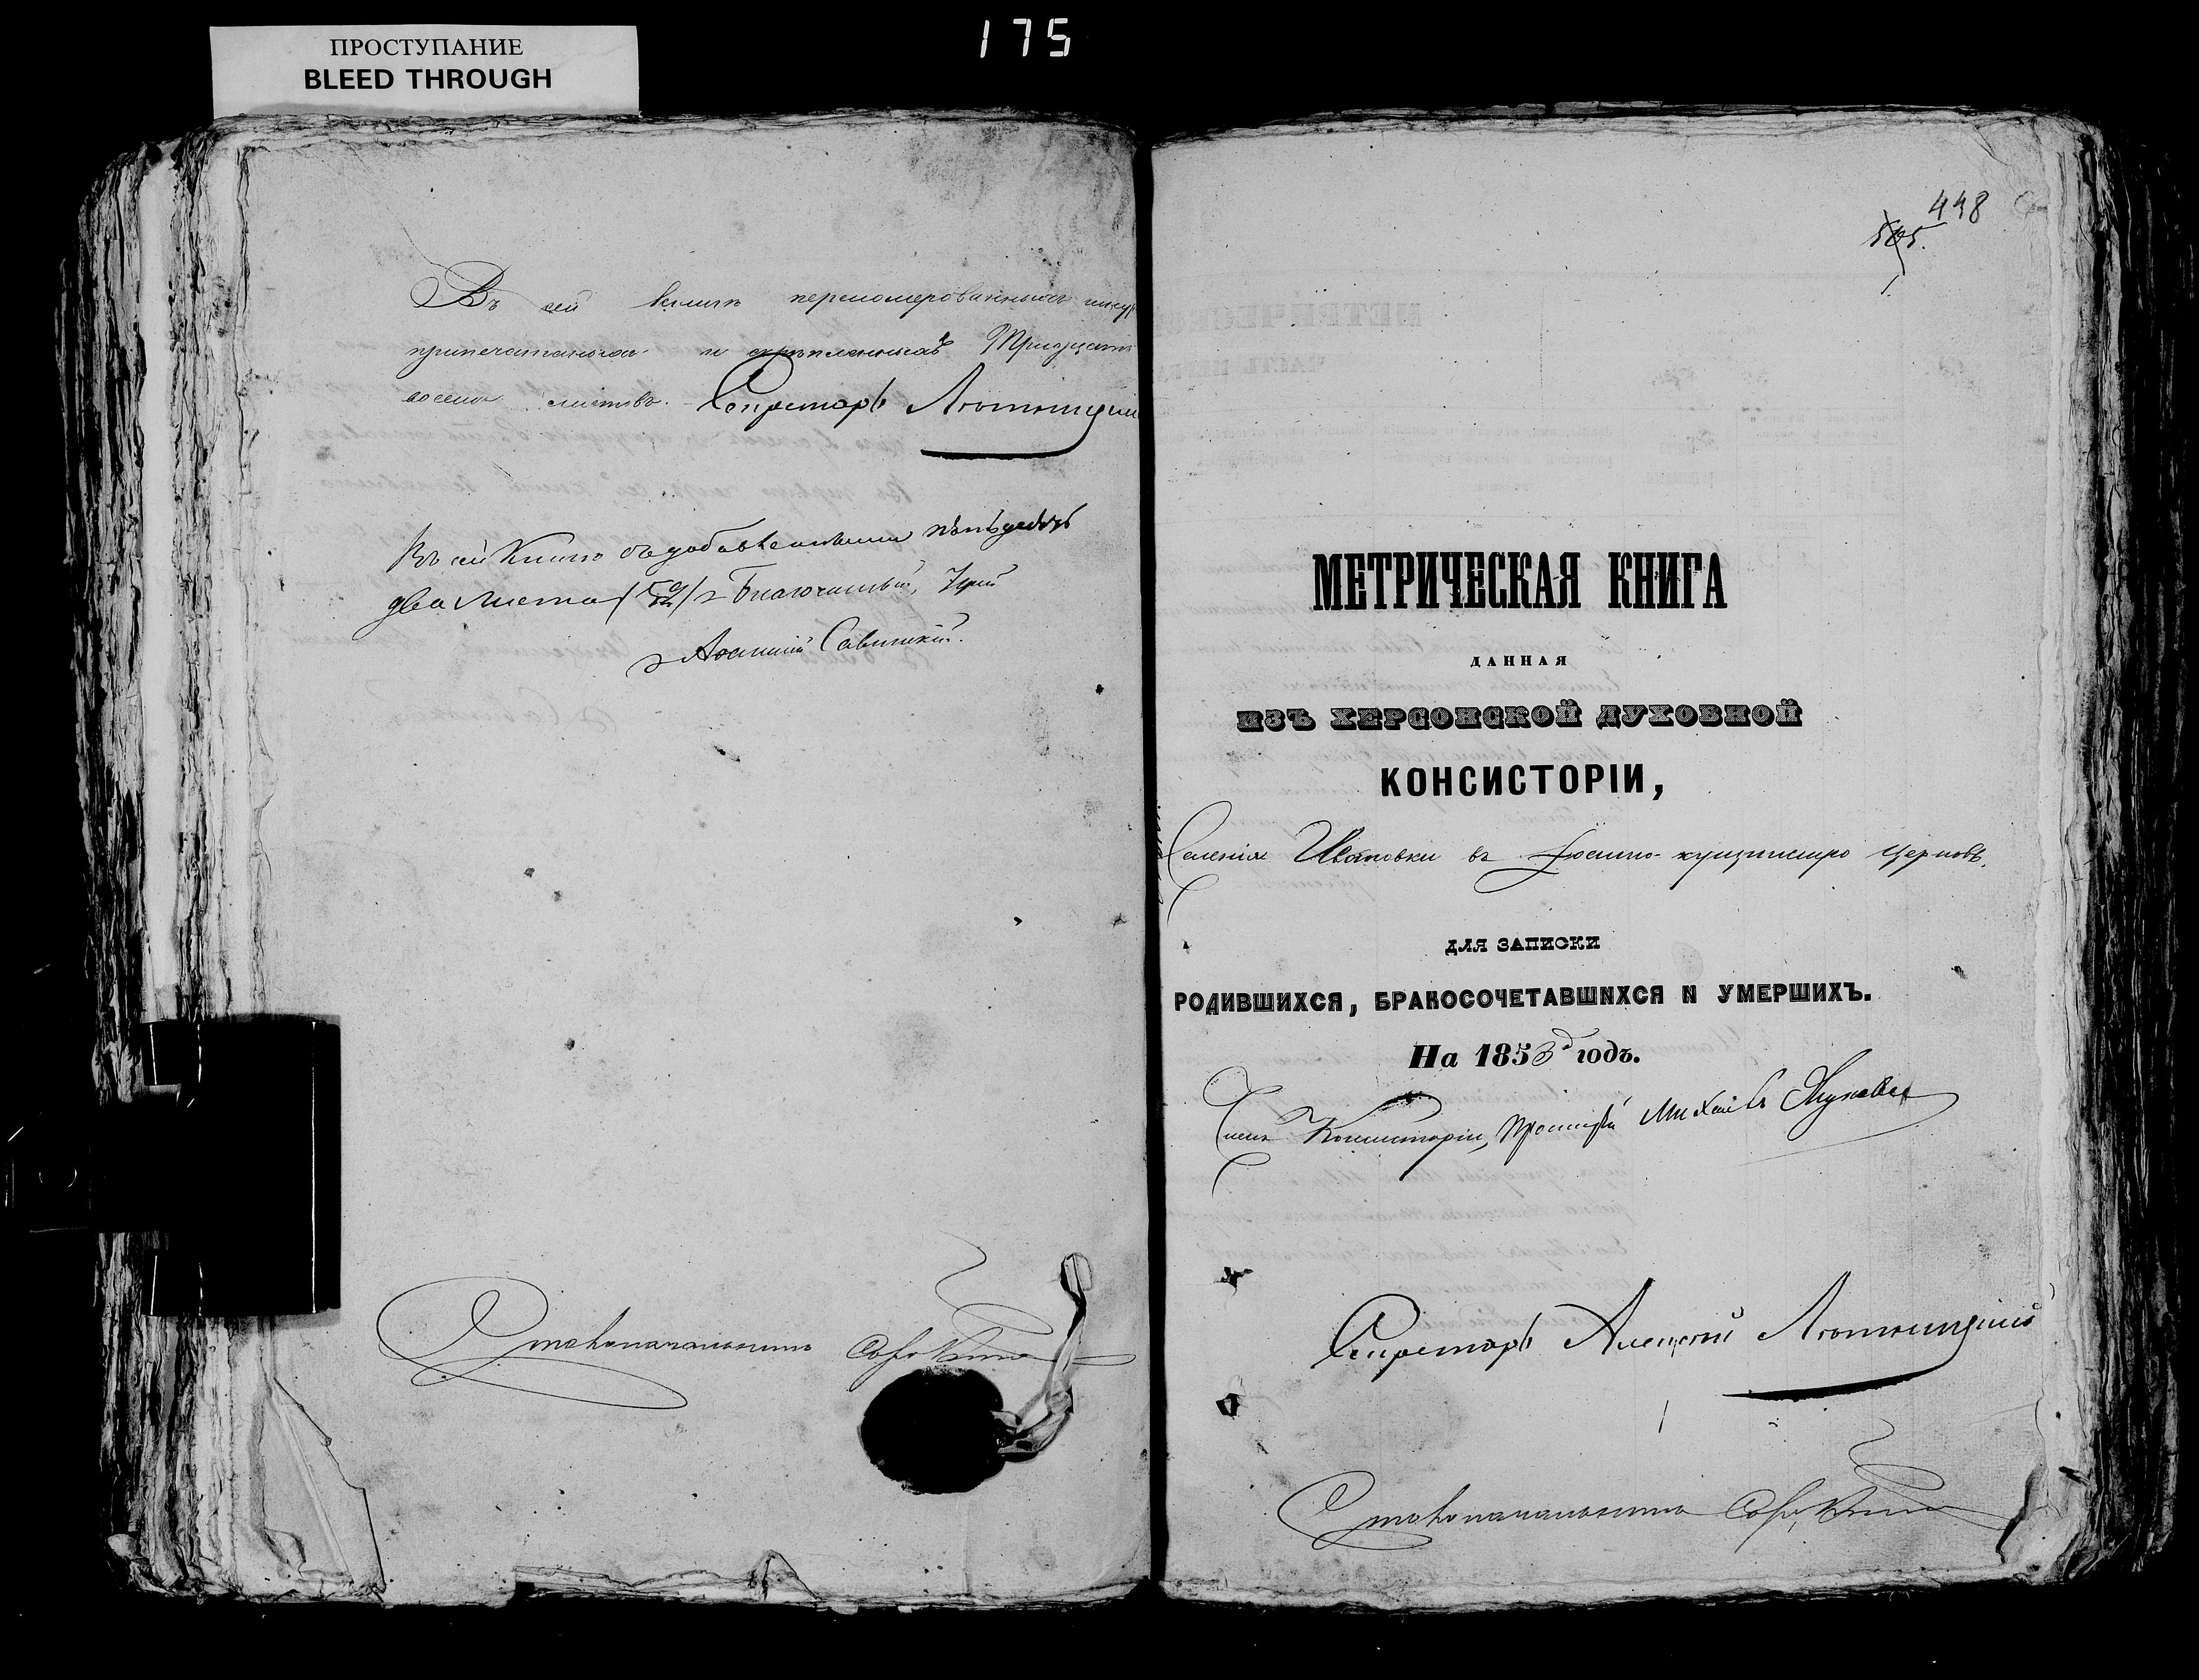 175
ПРОСТУПАНИЕ
BLEED THROUGH
Въ сей книги перенумерованныхъ шнур
припечатаныхъ и скрѣпленныхъ Тридцать
восемь листовъ. Секретарь
Въ сей Книгѣ съ добавленными пятьдесятъ
два листа (52) Благочинный, Іерей
Савицкій.
Столоначальникъ
448
505.
1.
МЕТРИЧЕСКАЯ КНИГА
ДАННАЯ
ИЗЪ ХЕРСОНСКОЙ ДУХОВНОЙ
КОНСИСТОРІИ,
Селенія Ивановки въ церковь.
ДЛЯ ЗАПИСКИ
РОДИВШИХСЯ, БРАКОСОЧЕТАВШИХСЯ И УМЕРШИХЪ.
На 1853й годъ.
Членъ Консисторіи, Протоіерей Михаилъ
Секретарь Алексѣй
Столоначальникъ